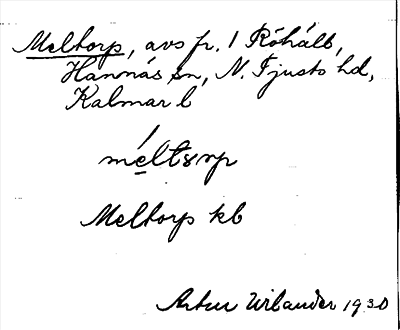 Meltorp, avs fr. 1 Röhälb,
Hannäs sn, N. Tjusts hd,
Kalmar l
méltorp
Meltorp kb
Artur Wilander 1930